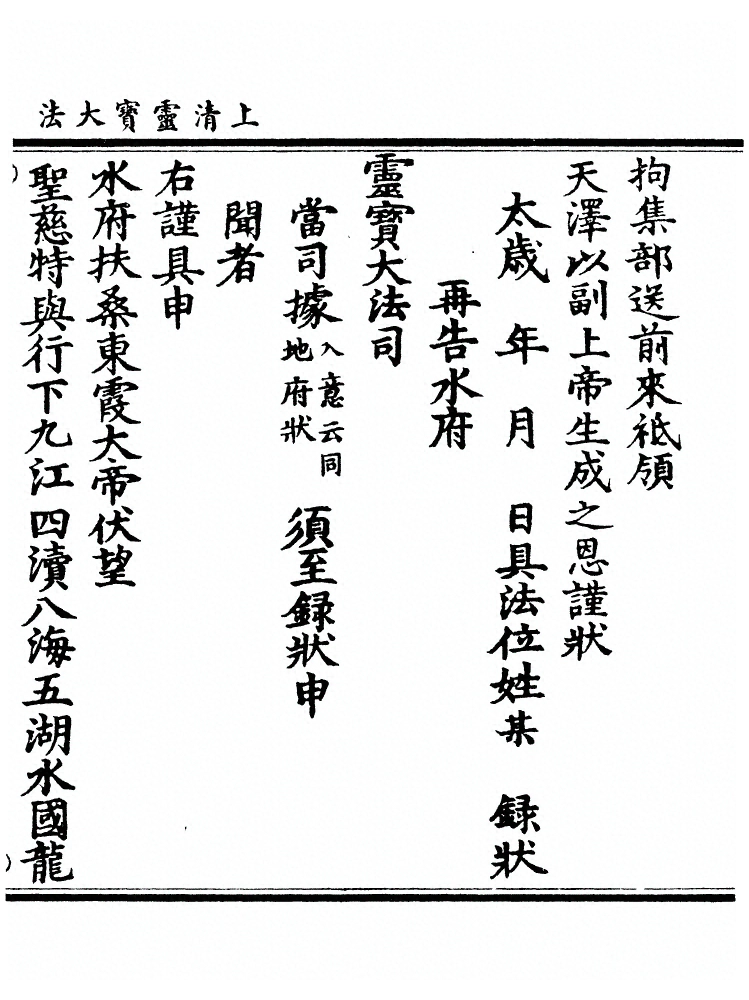 上清靈寶大法
拘集部送前來祗領
天澤以副上帝生成之恩謹狀
太歲　年　月　日具法位姓某　録狀
再告水府
靈寶大法司
當司據入意云同地府狀　須至録狀申
聞者
右謹具申
水府扶桑東霞大帝伏望
聖慈特與行下九江四瀆八海五湖水國龍